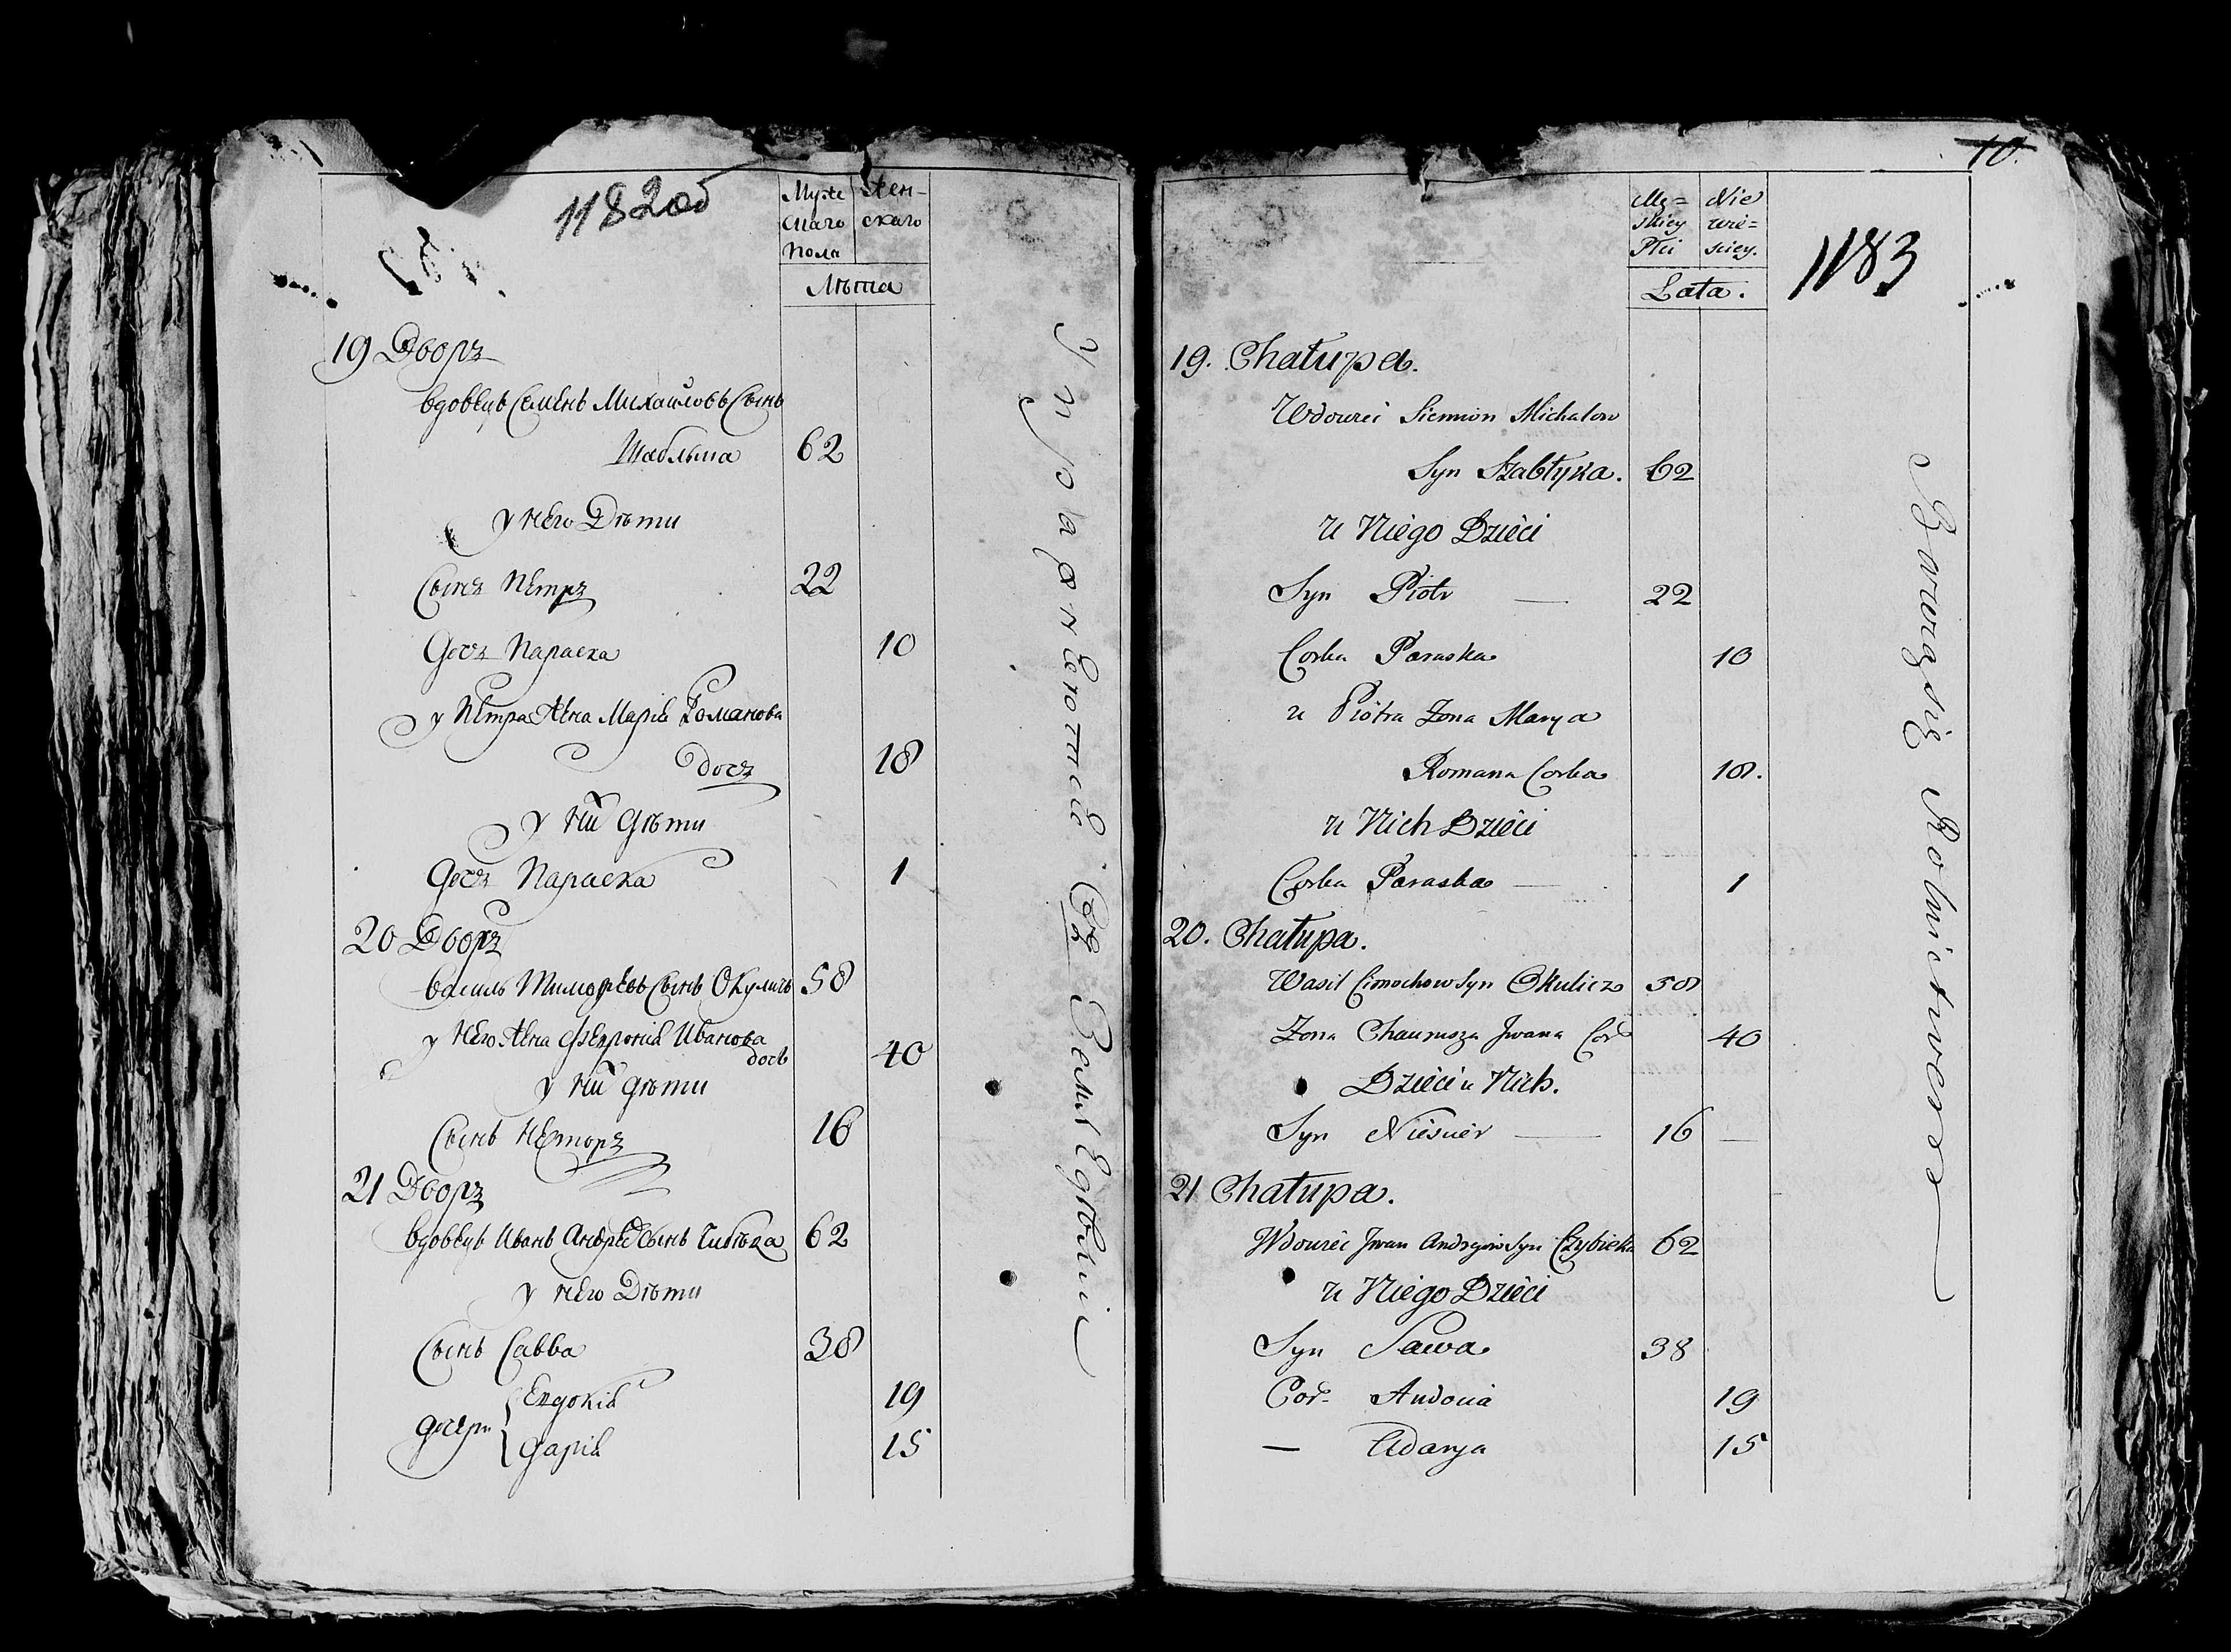 1182об
Муже Жен-
скаго скаго
Пола
Лѣта
19 Дворъ
Вдовецъ Семенъ Михайловъ Сынъ
Шаблыка 62
у Него Дѣти
Сынъ Петръ 22
Дочъ Параска 10
у Петра Жена Марія Романова
дочъ 18
у них дѣти
Дочъ Параска 1
20 Дворъ
Василь Тимофѣевъ Сынъ Окуличъ 58
у Него Жена Феврония Иванова
дочь 40
у них дѣти
Сынъ Несторъ 16
21 Дворъ
Вдовецъ Иванъ Андрѣевъ Сынъ Чибѣка 62
у Него Дѣти
Сынъ Савва 38
дочери Евдокія 19
Дарія 15
Упражняются Въ Земледѣліи
10.
1183
Męz= Nie
skiey wie=
Płci sciey.
Lata.
19. Chałupa.
Wdowiec Siemion Michałow
Syn Szabłyka. 62
u Niego Dzieci
Syn Piotr — 22
Corka Paraska 10
u Piotra Zona Marya
Romana Corka 18.
u Nich Dzieci
Corka Paraska — 1
20. Chałupa.
Wasil Cimochow Syn Okulicz 58
Zona Chaurusza Jwana Cor 40
Dzieci u Nich.
Syn Niescier — 16 —
21 Chałupa.
Wdowiec Jwan Andrejow Syn Czybieka 62
u Niego Dzieci
Syn Sawa 38
Cor- Audocia 19
— Adarya 15
Bawią się Rolnictwem